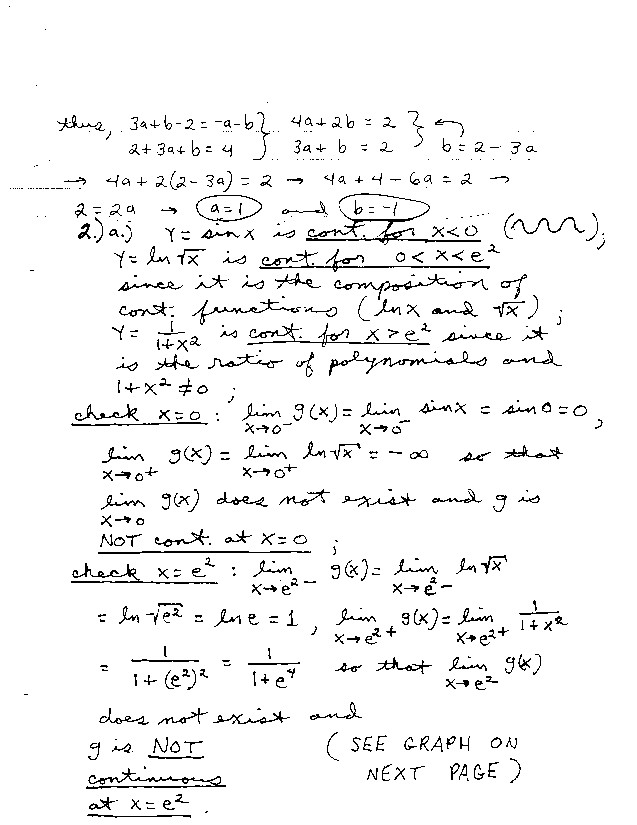 thus, 3a+b-2 = -a-b } 4a+2b = 2 }
2+3a+b = 4 } 3a+b = 2 b = 2-3a
→ 4a+2(2-3a) = 2 → 4a+4-6a = 2 →
2 = 2a → a=1 and b=-1
2.) a.) Y = sin x is cont. for x<0 ;
Y = ln √x is cont. for 0<x<e²
since it is the composition of
cont. functions (ln x and √x) ;
Y = 1/(1+x²) is cont. for x>e² since it
is the ratio of polynomials and
1+x² ≠ 0 ;
check x=0 : lim x→0⁻ g(x) = lim x→0⁻ sin x = sin 0 = 0 ,
lim x→0⁺ g(x) = lim x→0⁺ ln √x = -∞ so that
lim x→0 g(x) does not exist and g is
NOT cont. at x=0 ;
check x=e² : lim x→e²⁻ g(x) = lim x→e²⁻ ln √x
= ln √e² = ln e = 1 , lim x→e²⁺ g(x) = lim x→e²⁺ 1/(1+x²)
= 1/(1+(e²)²) = 1/(1+e⁴) so that lim x→e² g(x)
does not exist and
g is NOT (SEE GRAPH ON
continuous NEXT PAGE)
at x=e² .